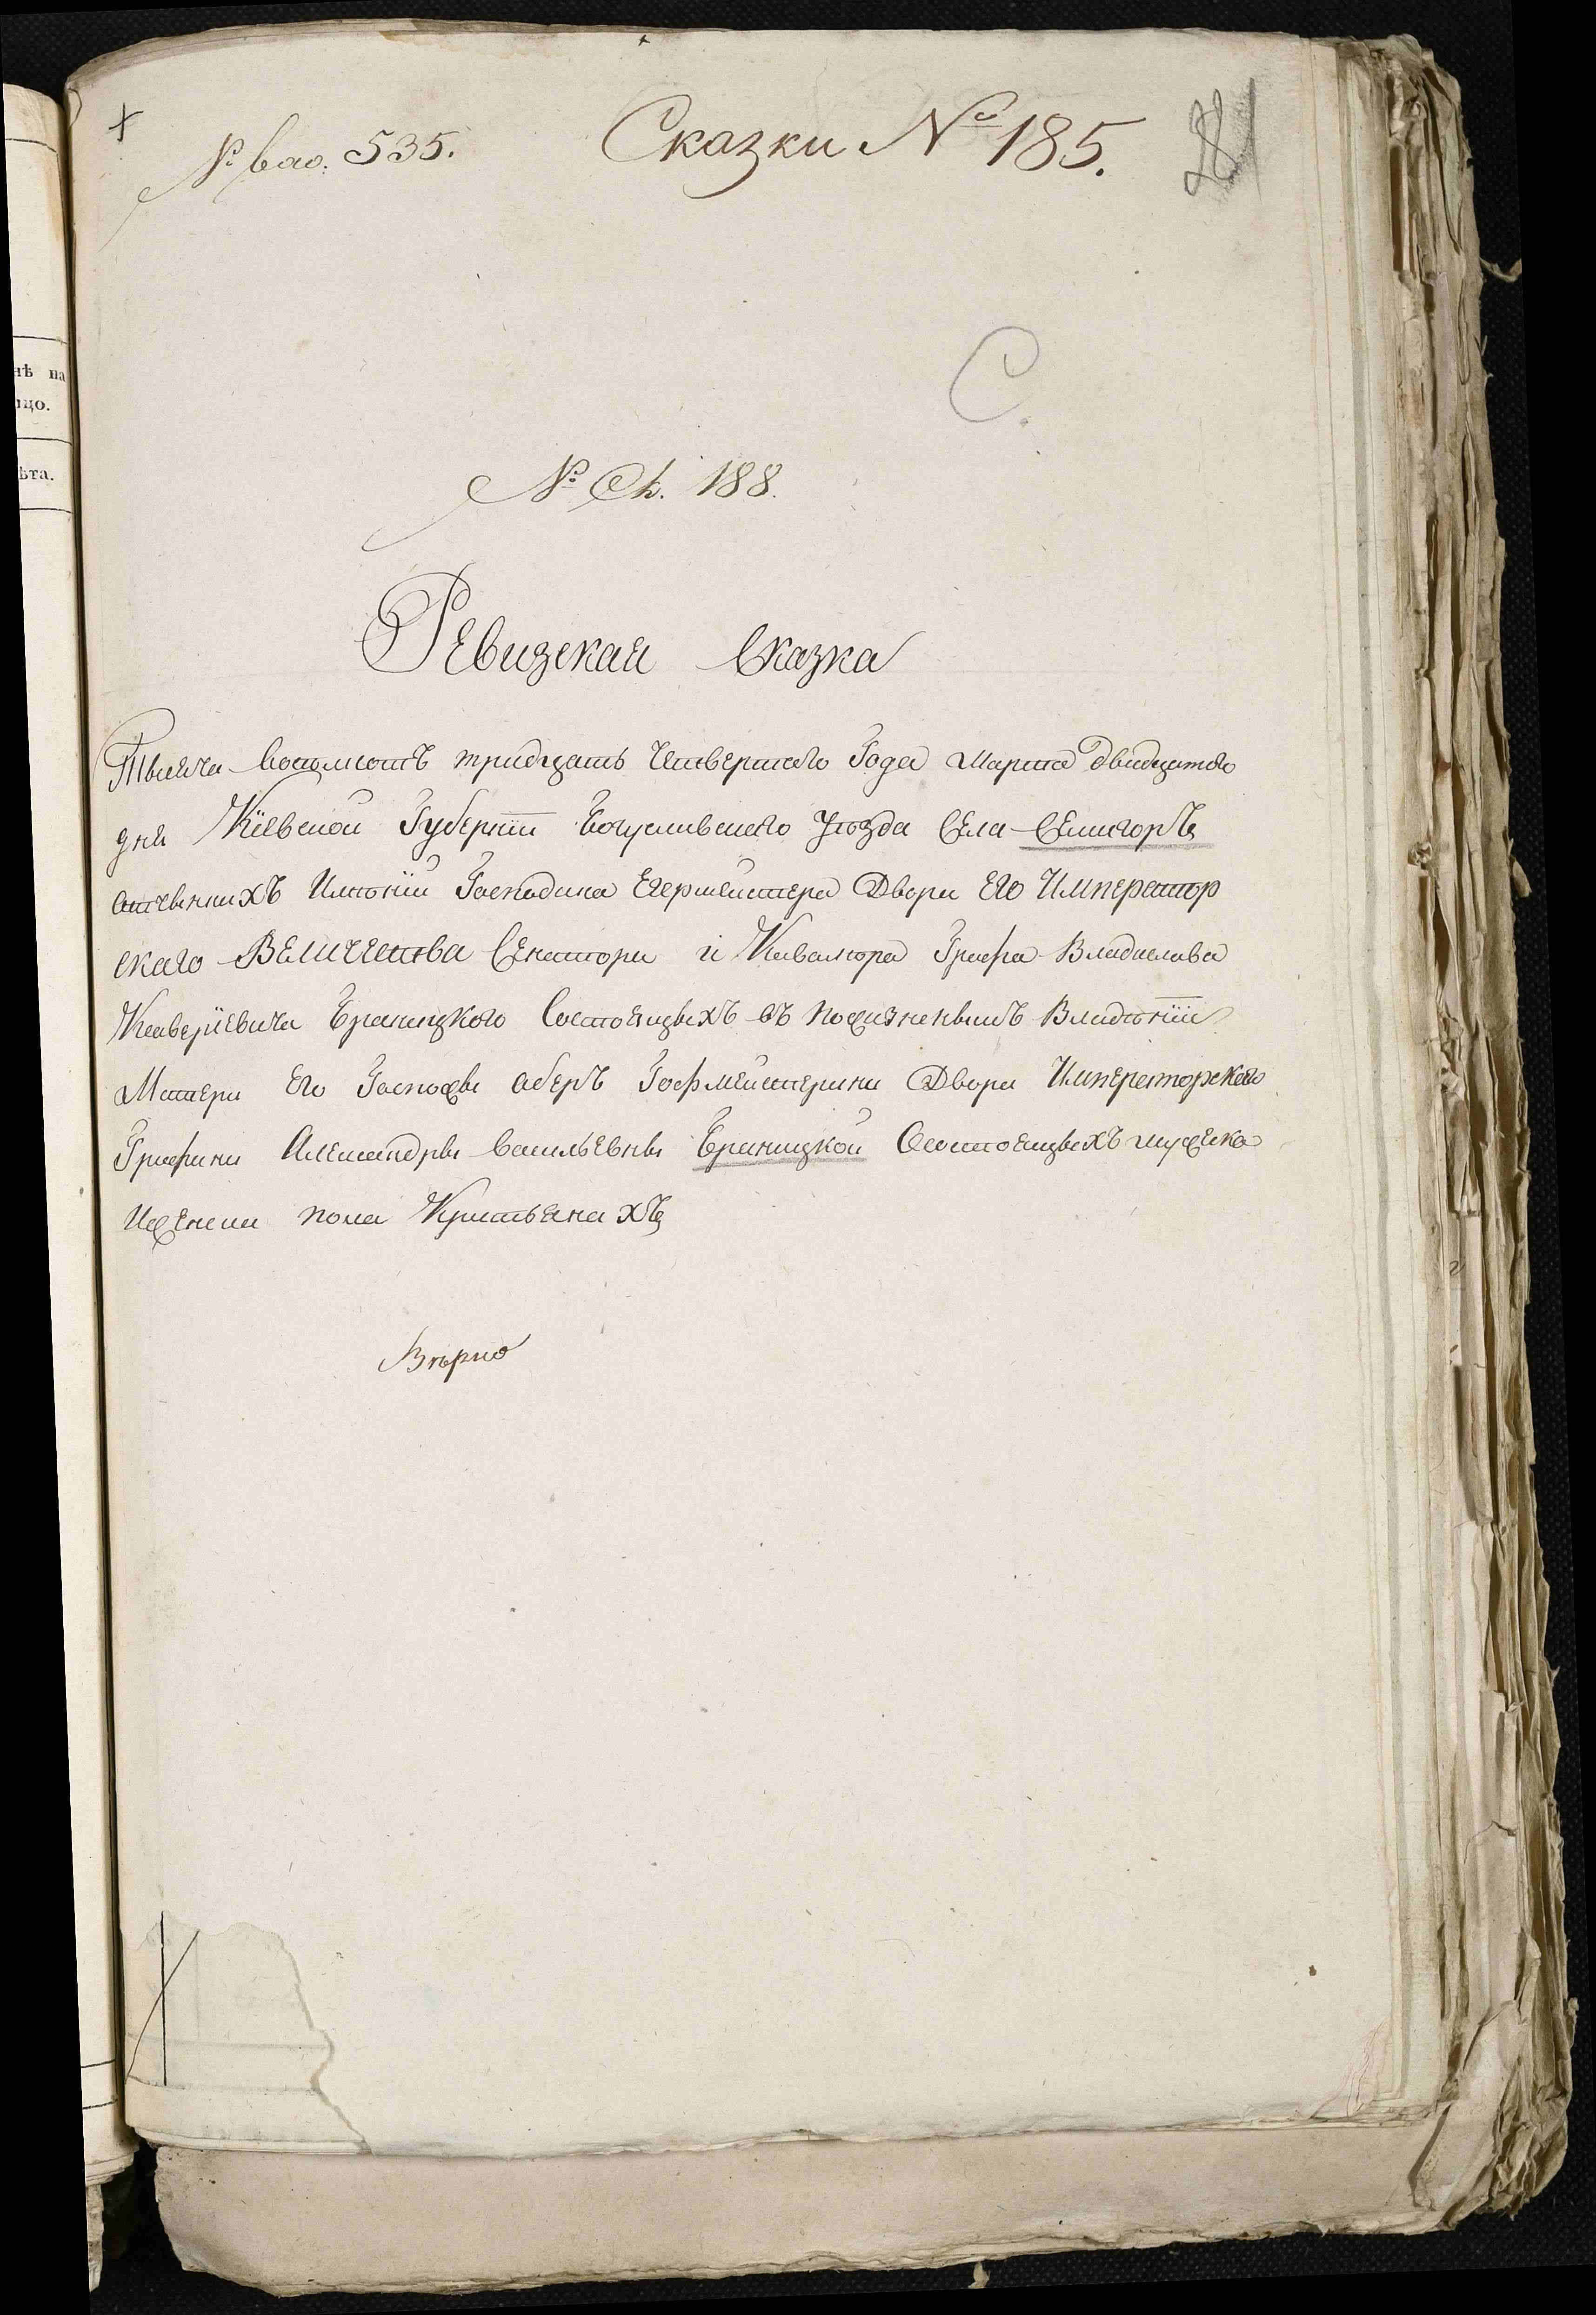 № вхо. 535.
Сказки № 185.
С.
№ Ст. 188.
Ревизская Сказка
Тысяча восемьсотъ тридцать Четвертаго Года Марта двадцатого
дня Кіевской Губерніи Богуславского Уѣзда Села Селигоръ
отчевныхъ Имѣній Господина Егермейстера Двора Его Император
скаго ВЕЛИЧЕства Сенатора и Кавалера Графа Владислава
Ксаверіевича Браницкого Состоящихъ въ пожизненнымъ Владѣніи
Матери Его Госпожи оберъ Гофмейстерины Двора Императорского
Графини Александры васильевны Браницкой Осостоящихъ мужеска
Иженска пола Крестьянахъ
Вѣрно
нѣ на
ицо.
ѣта.